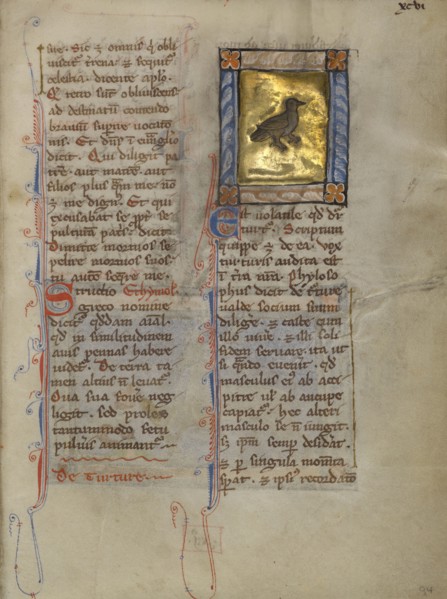 xcvi
sue. Sic & omnis q obli
uiscit trena & sequit
celestia. dicente aplo.
Q retro sunt obliuiscens
ad destinatu contendo
brauiu superne uocatio
nis. Et dns i euuglio
dicit. Qui diligit pa
tre. aut matre. aut
filios plus qm me. no
e me dign. Et qui
excusabat se ppt se
pultura patris. dicit.
Dimitte mortuos se
pelire mortuos suos.
tu aute seqre me.
Structio Ethymol
greco nomine
dicit. qddam aial.
qd in similitudinem
auis pennas habere
uidet. De terra ta
men alcius n leuat.
Oua sua fouere neg
ligit. sed proles
tantummodo fetu
pulueris animant.
De Turture
Est uolatile qd dr
turt. Scriptum
quippe e de ea. vox
turturis audita est
i tra nra. Phyloso
phus dicit de turture
ualde socium suum
dilige. & caste cum
illo uiue. & illi soli
fidem seruare. ita ut
si qndo euenit. qd
masculus ei ab acci
pitre ul ab aucupe
capiat. hec alteri
masculo se n iungit.
s ipm semp desidat.
& p singula momta
spat. & ipsi recordatio
94